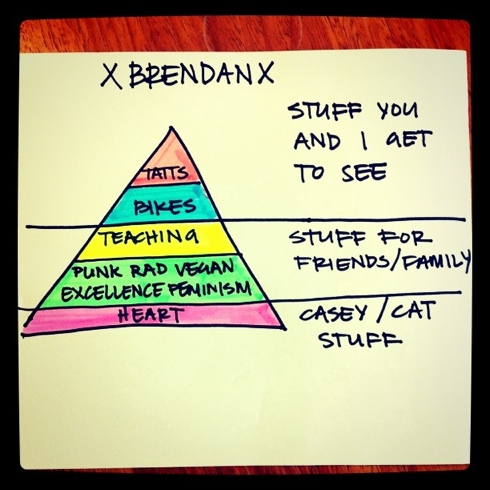 X BRENDAN X
STUFF YOU
AND I GET
TO SEE
TATTS
BIKES
TEACHING
STUFF FOR
FRIENDS/FAMILY
PUNK RAD VEGAN
EXCELLENCE FEMINISM
HEART
CASEY/CAT
STUFF